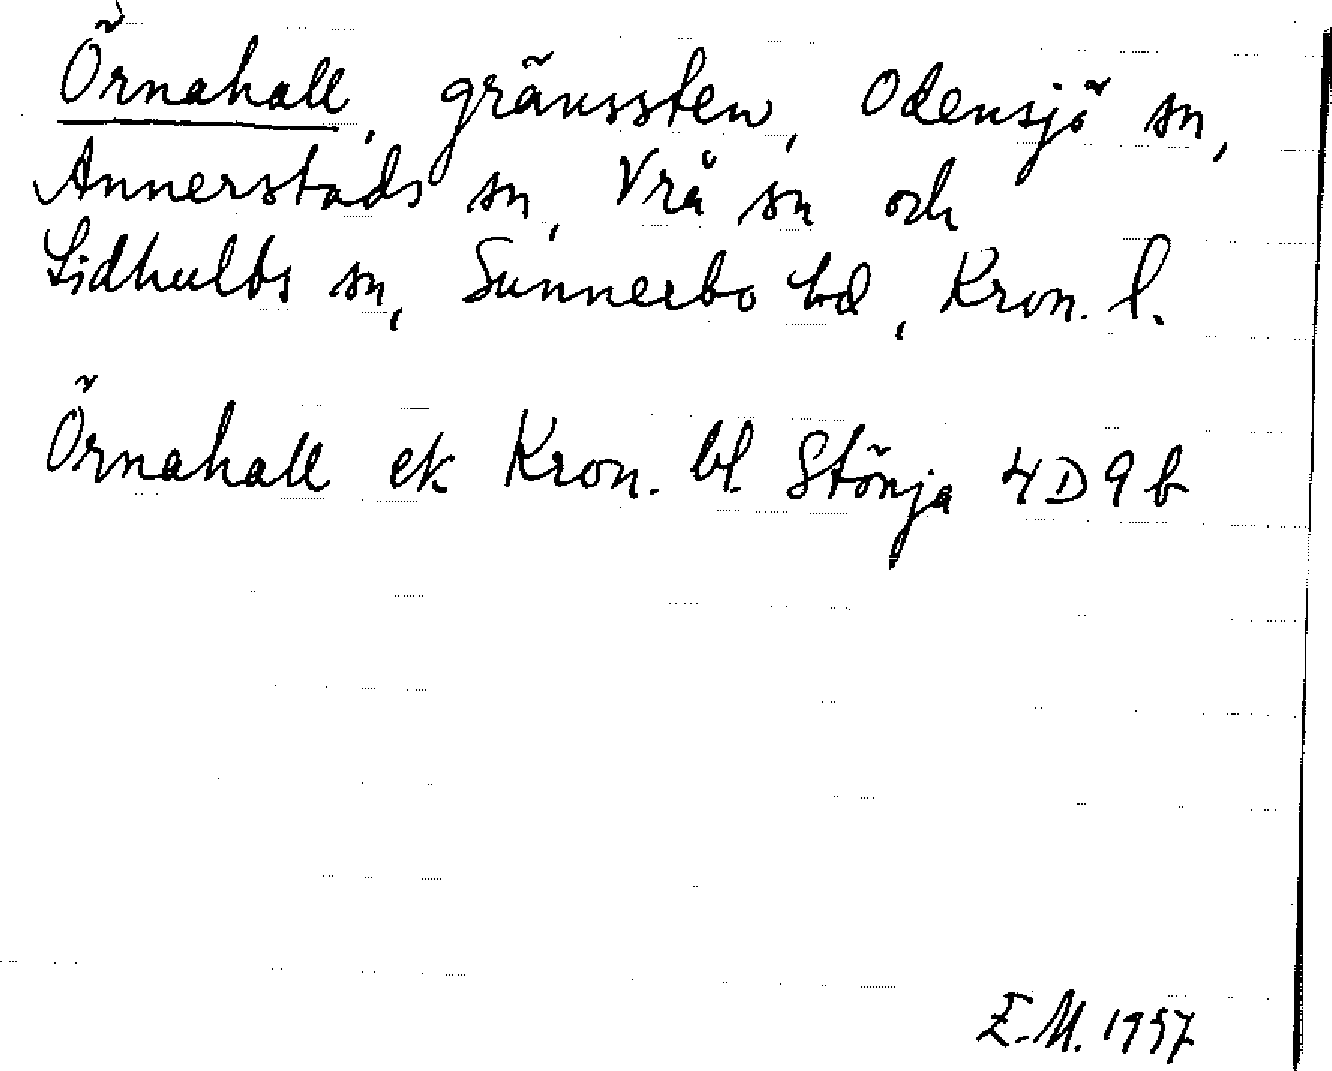 Örnahall, gränssten, Odensjö sn,
Annerstads sn, Vrå sn och
Lidhults sn, Sunnerbo hd, Kron. l.
Örnahall ek Kron. bl. Stönja 4D9b
E.M. 1957